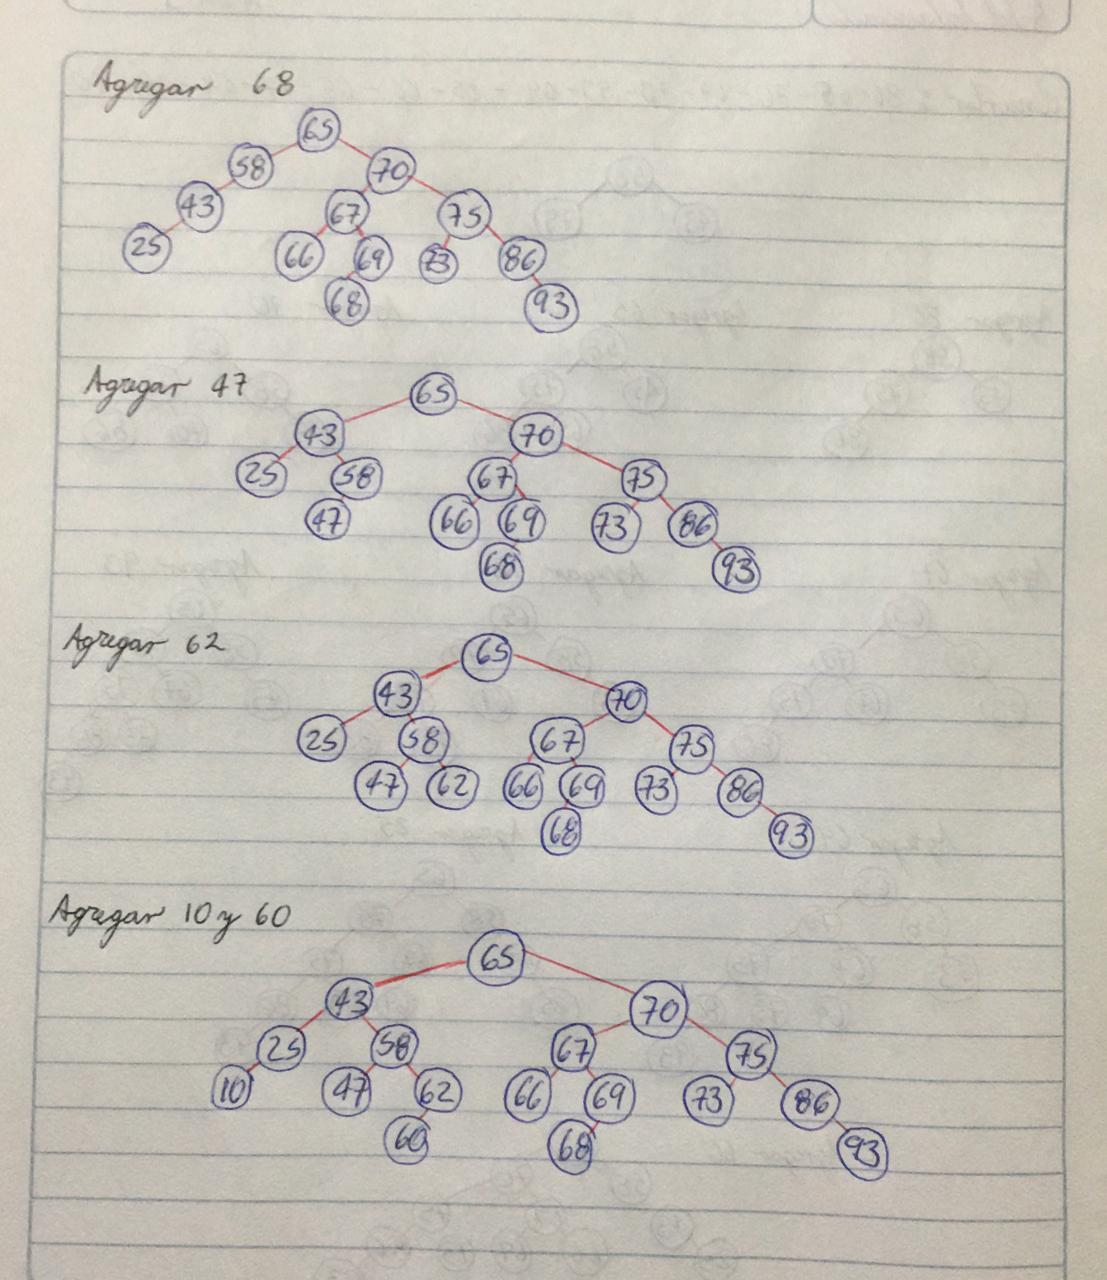 Agregar 68
65
58 70
43 67 75
25 66 69 73 86
68 93
Agregar 47
65
43 70
25 58 67 75
47 66 69 73 86
68 93
Agregar 62
65
43 70
25 58 67 75
47 62 66 69 73 86
68 93
Agregar 10 y 60
65
43 70
25 58 67 75
10 47 62 66 69 73 86
60 68 93